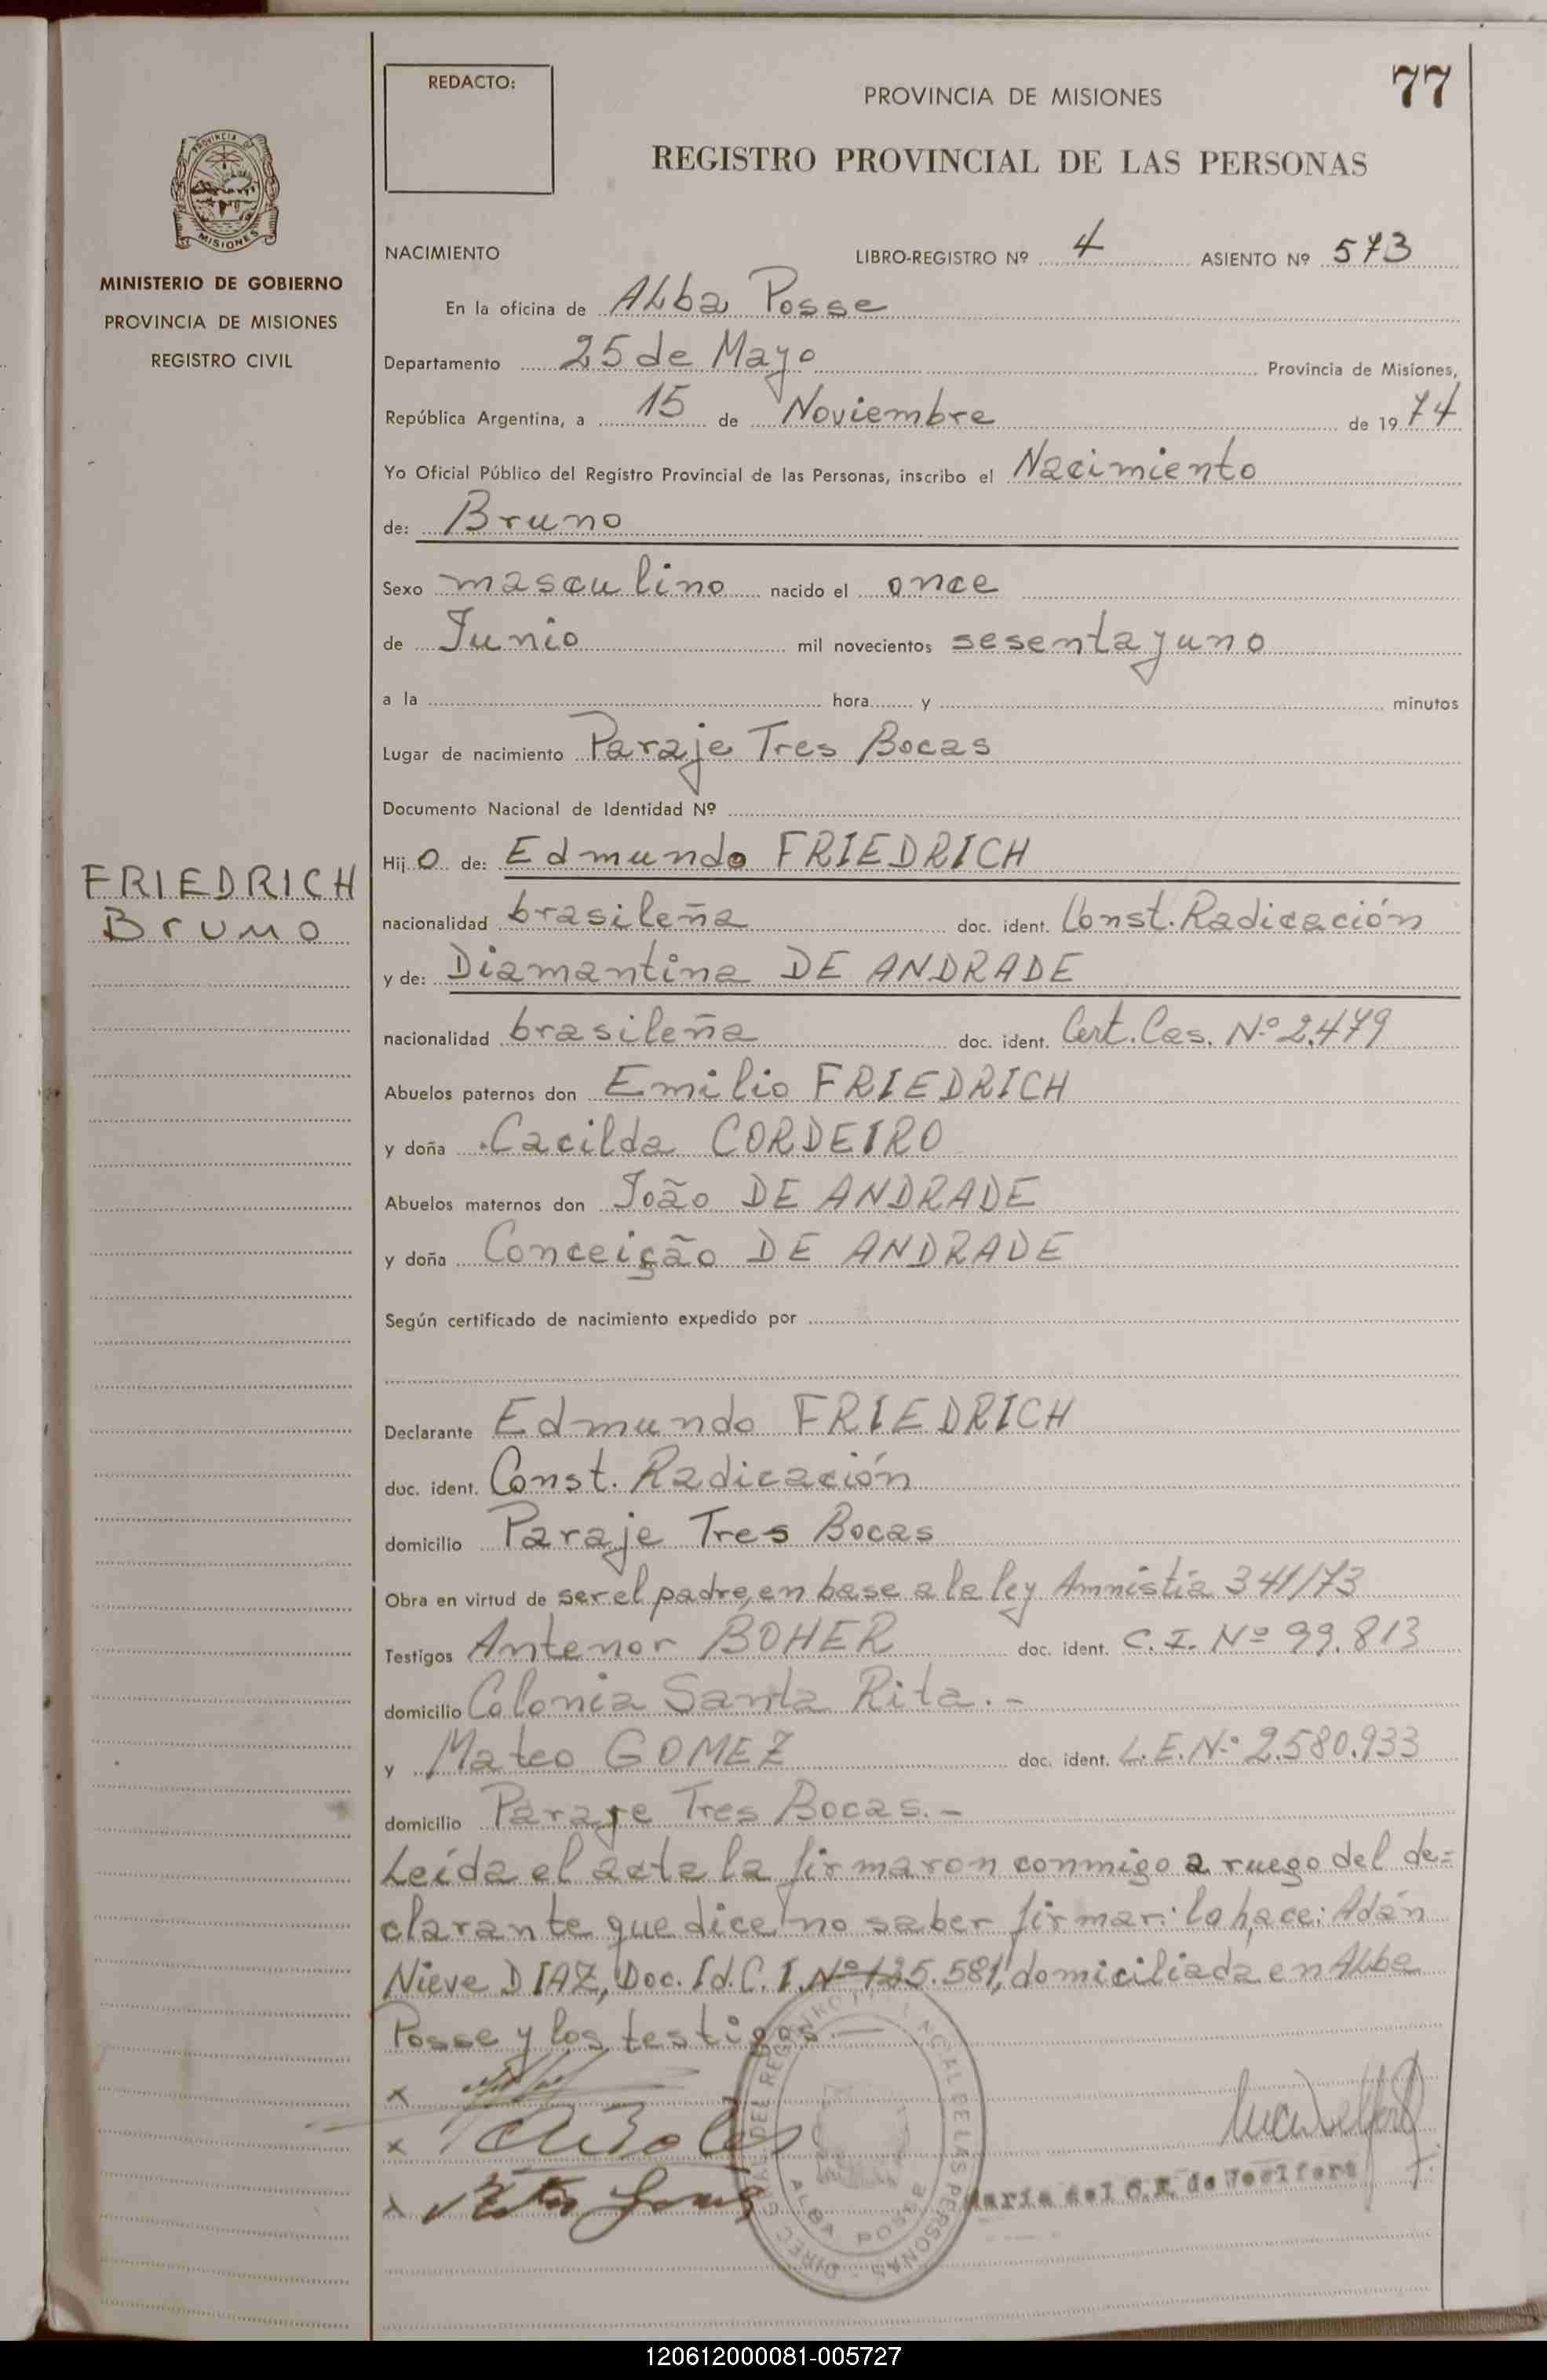 REDACTO:
PROVINCIA DE MISIONES
77
REGISTRO PROVINCIAL DE LAS PERSONAS
PROVINCIA DE
MISIONES
MINISTERIO DE GOBIERNO
PROVINCIA DE MISIONES
REGISTRO CIVIL
NACIMIENTO LIBRO-REGISTRO Nº 4 ASIENTO Nº 573
En la oficina de Alba Posse
Departamento 25 de Mayo Provincia de Misiones,
República Argentina, a 15 de Noviembre de 1974
Yo Oficial Público del Registro Provincial de las Personas, inscribo el Nacimiento
de: Bruno
Sexo masculino nacido el once
de Junio mil novecientos sesenta y uno
a la hora y minutos
Lugar de nacimiento Paraje Tres Bocas
Documento Nacional de Identidad Nº
Hijo de: Edmundo FRIEDRICH
FRIEDRICH
Bruno
nacionalidad brasileña doc. ident. Const. Radicación
y de: Diamantina DE ANDRADE
nacionalidad brasileña doc. ident. Cert. Cas. Nº 2.479
Abuelos paternos don Emilio FRIEDRICH
y doña Cacilda CORDEIRO
Abuelos maternos don João DE ANDRADE
y doña Conceição DE ANDRADE
Según certificado de nacimiento expedido por
Declarante Edmundo FRIEDRICH
doc. ident. Const. Radicación
domicilio Paraje Tres Bocas
Obra en virtud de ser el padre, en base a la ley Amnistía 341/73
Testigos Antenor BOHER doc. ident. C. I. Nº 99.813
domicilio Colonia Santa Rita.-
y Mateo GOMEZ doc. ident. L.E. Nº 2.580.933
domicilio Paraje Tres Bocas.-
Leída el acta la firmaron conmigo a ruego del de=
clarante que dice no saber firmar: lo hace: Adán
Nieve DIAZ, Doc. Id. C. I. Nº 125.581, domiciliada en Alba
Posse y los testigos.—
x
x
x
DEL REGISTRO PROVINCIAL DE LAS PERSONAS
ALBA POSSE
120612000081-005727